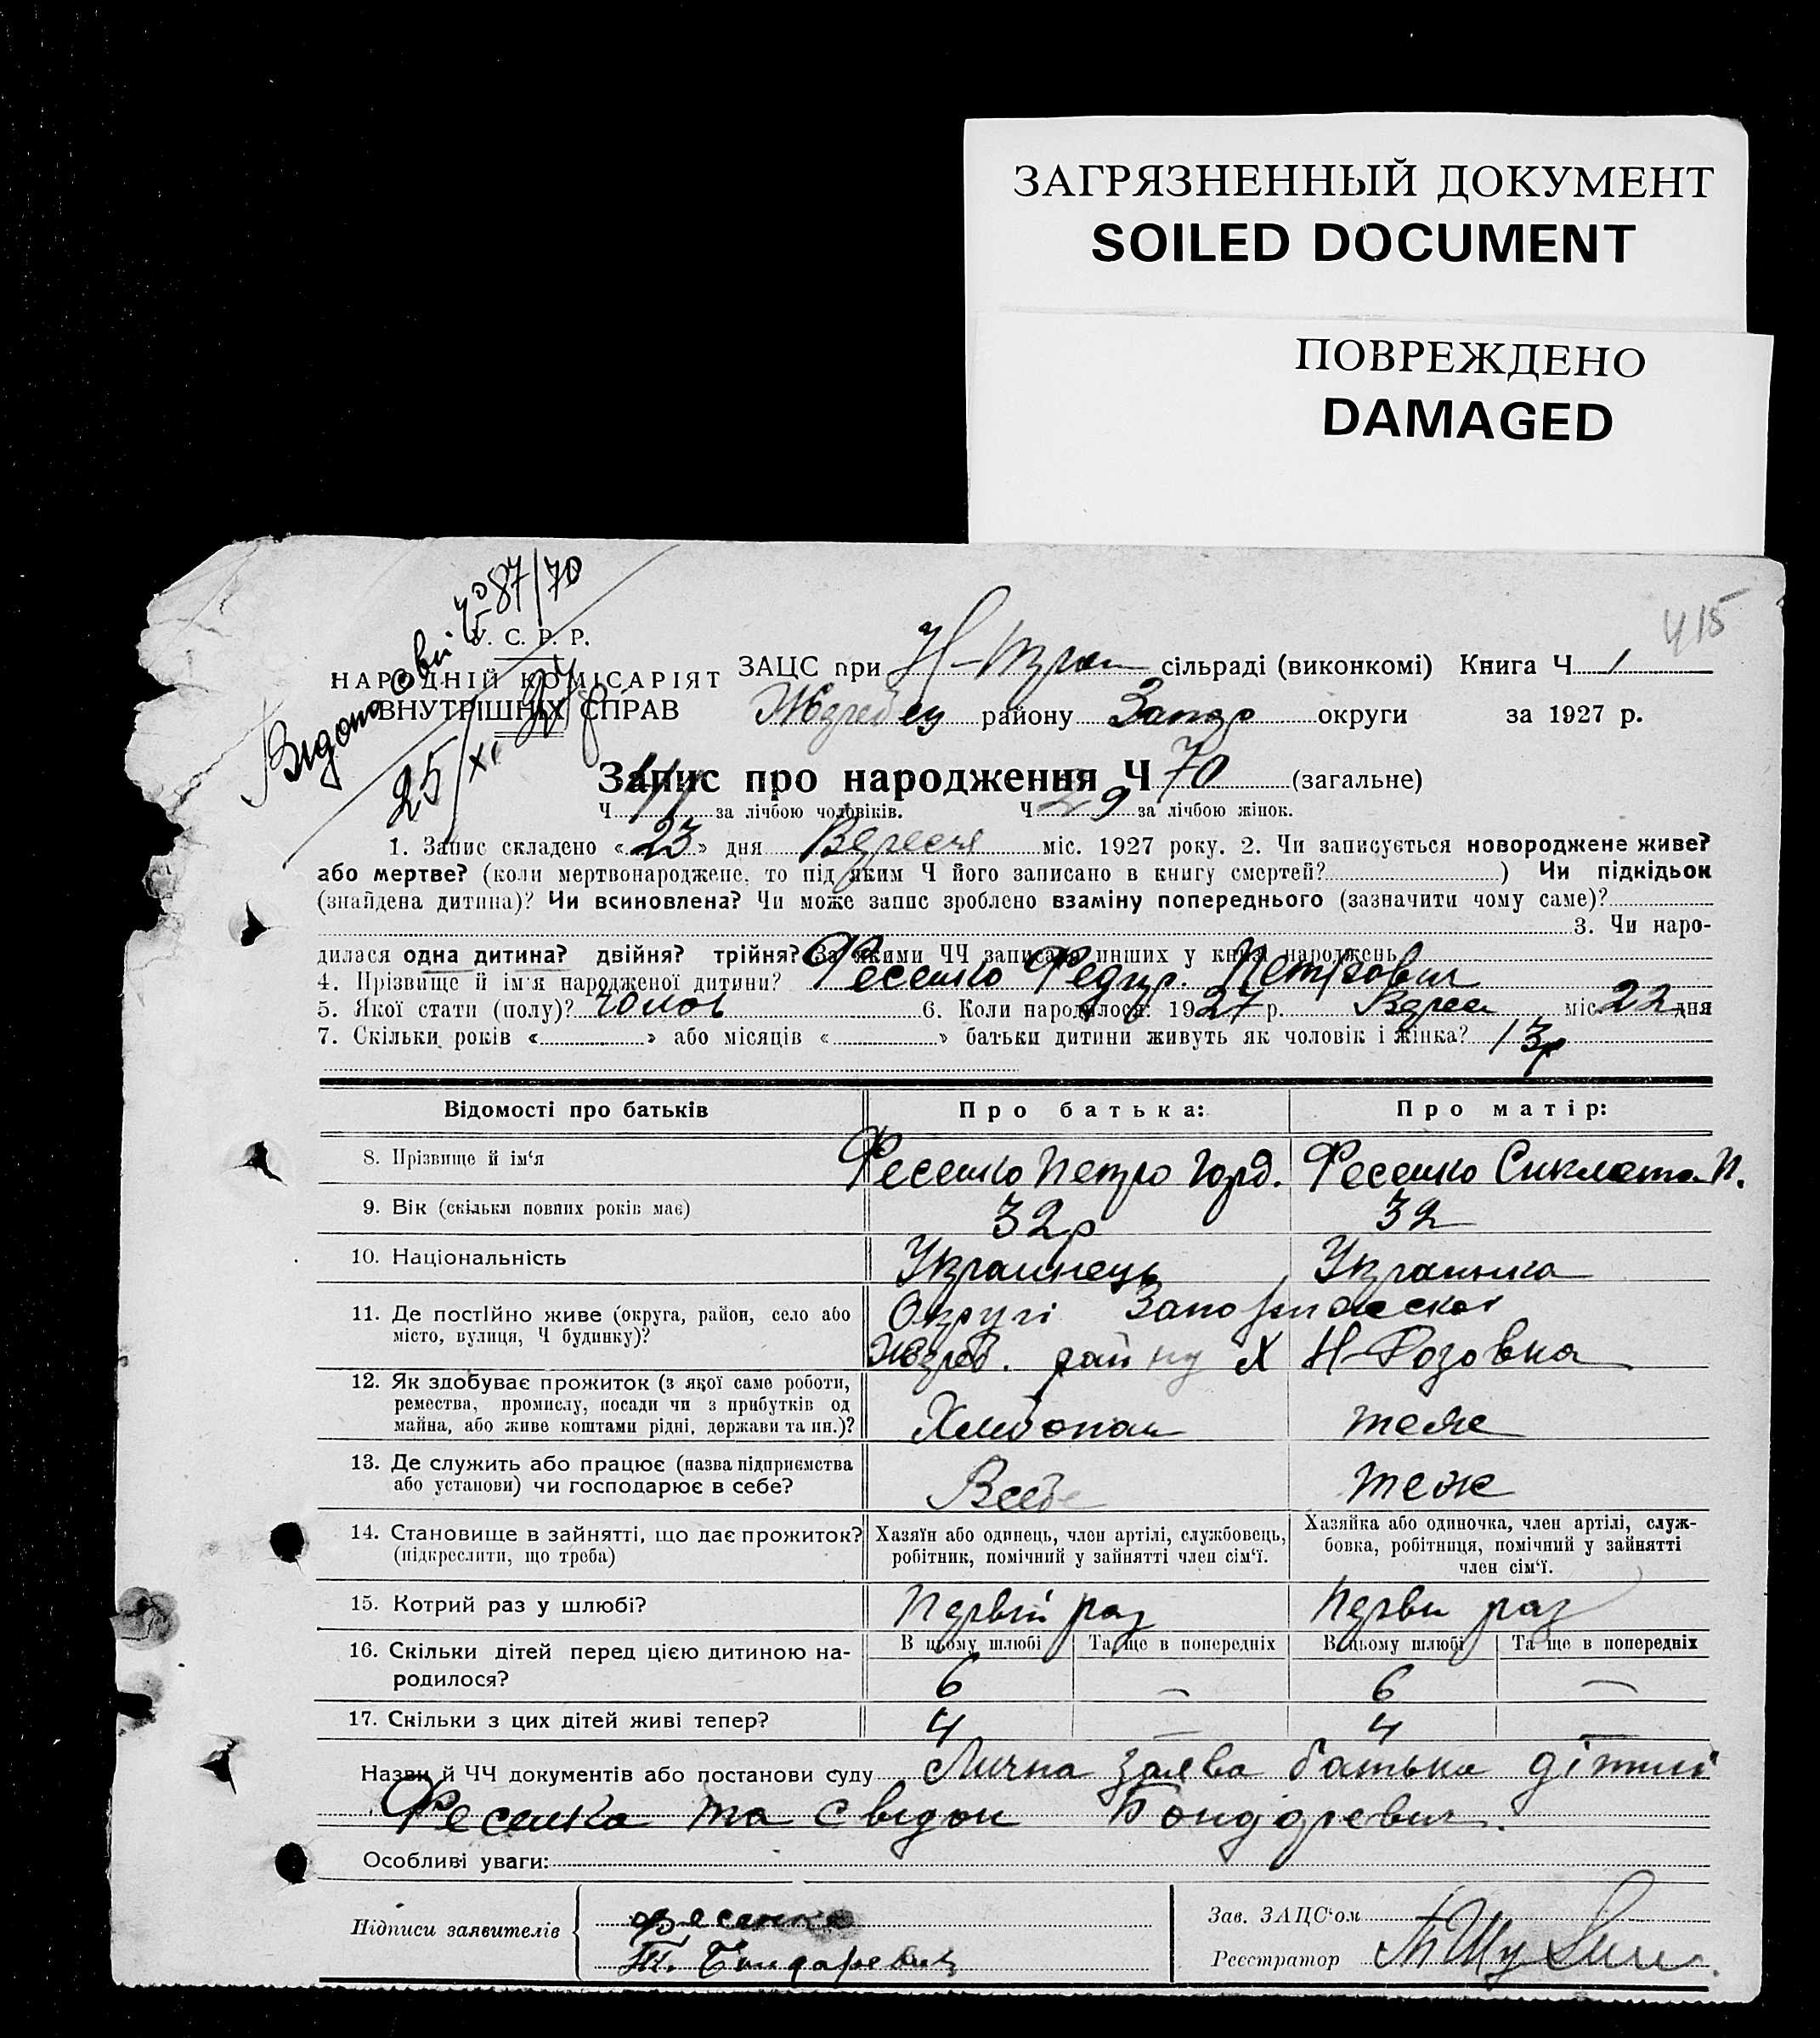 ЗАГРЯЗНЕННЫЙ ДОКУМЕНТ
SOILED DOCUMENT
ПОВРЕЖДЕНО
DAMAGED
415
87/70
25/XI
У. С. Р. Р.
НАРОДНІЙ КОМІСАРІЯТ
ВНУТРІШНІХ СПРАВ
ЗАЦС при сільраді (виконкомі) Книга Ч 1
Жеребец району Запор округи за 1927 р.
Запис про народження Ч 70 (загальне)
Ч 41 за лічбою чоловіків. Ч 29 за лічбою жінок.
1. Запис складено «23» дня Вересня міс. 1927 року. 2. Чи записується новороджене живе?
або мертве? (коли мертвонароджене, то під яким Ч його записано в книгу смертей? ) Чи підкідьок
(знайдена дитина)? Чи всиновлена? Чи може запис зроблено взаміну попереднього (зазначити чому саме)?
3. Чи наро-
дилася одна дитина? двійня? трійня? За якими ЧЧ записано инших у книзі народжень
4. Прізвище й ім'я народженої дитини? Фесенко Федір. Петрович
5. Якої стати (полу)? чолов 6. Коли народилося: 1927 р. Верес міс 22 дня
7. Скільки років « » або місяців « » батьки дитини живуть як чоловік і жінка? 13р
Відомості про батьків Про батька: Про матір:
8. Прізвище й ім'я Фесенко Петро Горд. Фесенко Синклета П.
9. Вік (скільки повних років має) 32р 32
10. Національність Украинець Украинка
11. Де постійно живе (округа, район, село або Округі Запорижськоі
місто, вулиця, Ч будинку)? Жереб. району Х Н-Розовка
12. Як здобуває прожиток (з якої саме роботи,
ремества, промислу, посади чи з прибутків од
майна, або живе коштами рідні, держави та ин.)? Хлибопаш теже
13. Де служить або працює (назва підприємства
або установи) чи господарює в себе? Всебе теж
14. Становище в зайнятті, що дає прожиток? Хазяїн або одинець, член артілі, службовець, Хазяйка або одиночка, член артілі, служ-
(підкреслити, що треба) робітник, помічний у зайнятті член сім'ї. бовка, робітниця, помічний у зайнятті
член сім'ї.
15. Котрий раз у шлюбі? Первій раз Перви раз
16. Скільки дітей перед цією дитиною на- В цьому шлюбі Та ще в попередніх В цьому шлюбі Та ще в попередніх
родилося? 6 — 6 —
17. Скільки з цих дітей живі тепер? 4 — 4 —
Назви й ЧЧ документів або постанови суду Лична заява батька дітині
Фесенка та свидок Бондаревич.
Особливі уваги:
Підписи заявителів Фесенко
Бондаревич
Зав. ЗАЦС'ом
Реєстратор